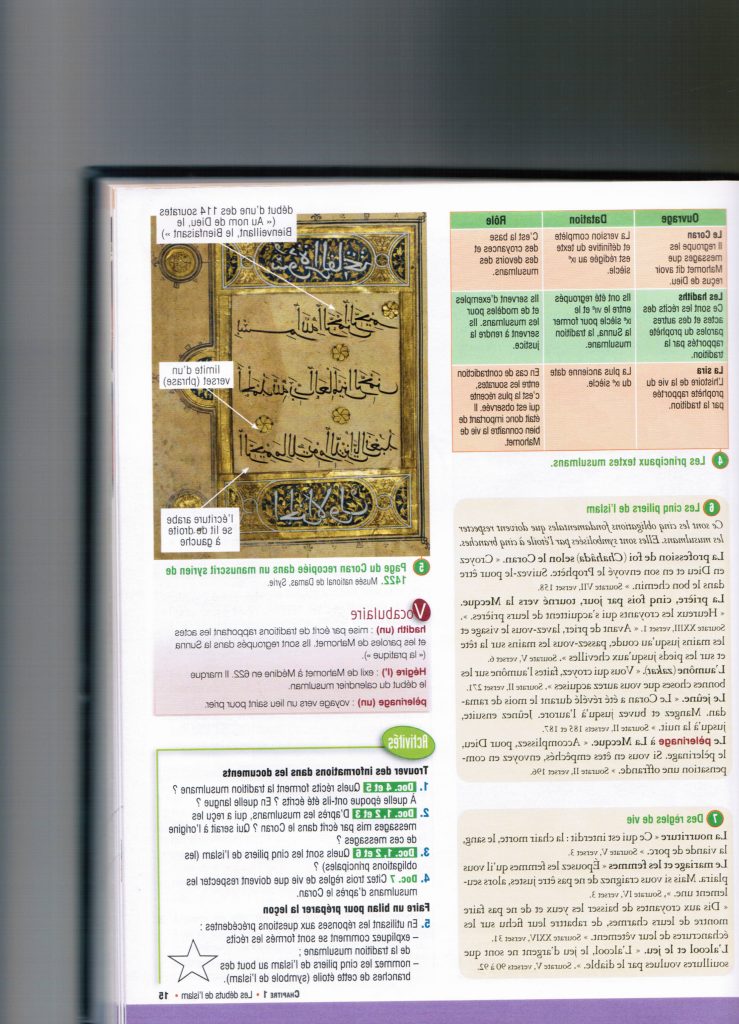 Ouvrage
Datation
Rôle
Le Coran
Il regroupe les
messages que
Mahomet dit avoir
reçus de Dieu.
La version complète
et définitive du texte
est rédigée au IXe
siècle.
C'est la base
des croyances et
des devoirs des
musulmans.
Les hadiths
Ce sont les récits des
actes et des autres
paroles du prophète
rapportés par la
tradition.
Ils ont été regroupés
entre le VIIe et le
IXe siècle pour former
la Sunna, la tradition
musulmane.
Ils servent d'exemples
et de modèles pour
les musulmans. Ils
servent à rendre la
justice.
La sira
L'histoire de la vie du
prophète rapportée
par la tradition.
La plus ancienne date
du IXe siècle.
En cas de contradiction
entre les sourates,
c'est la plus récente
qui est observée. Il
était donc important de
bien connaître la vie de
Mahomet.
4 Les principaux textes musulmans.
6 Les cinq piliers de l'islam
Ce sont les cinq obligations fondamentales que doivent respecter
les musulmans. Elles sont symbolisées par l'étoile à cinq branches.
La profession de foi (Chahâda) selon le Coran. « Croyez
en Dieu et en son envoyé le Prophète. Suivez-le pour être
dans le bon chemin. » Sourate VII, verset 158.
La prière, cinq fois par jour, tourné vers la Mecque.
« Heureux les croyants qui s'acquittent de leurs prières. »,
Sourate XXIII, verset 1. « Avant de prier, lavez-vous le visage et
les mains jusqu'au coude, passez-vous les mains sur la tête
et sur les pieds jusqu'aux chevilles ». Sourate V, verset 6.
L'aumône (zakat). « Vous qui croyez, faites l'aumône sur les
bonnes choses que vous aurez acquises ». Sourate II, verset 271.
Le jeûne. « Le Coran a été révélé durant le mois de rama-
dan. Mangez et buvez jusqu'à l'aurore. Jeûnez ensuite,
jusqu'à la nuit. » Sourate II, versets 185 et 187.
Le pèlerinage à La Mecque. « Accomplissez, pour Dieu,
le pèlerinage. Si vous en êtes empêchés, envoyez en com-
pensation une offrande. » Sourate II, verset 196.
7 Des règles de vie
La nourriture « Ce qui est interdit : la chair morte, le sang,
la viande de porc ». Sourate V, verset 3.
Le mariage et les femmes « Épousez les femmes qu'il vous
plaira. Mais si vous craignez de ne pas être justes, alors seu-
lement une. », Sourate IV, verset 3.
« Dis aux croyantes de baisser les yeux et de ne pas faire
montre de leurs charmes, de rabattre leur fichu sur les
échancrures de leur vêtement. » Sourate XXIV, verset 31.
L'alcool et le jeu. « L'alcool, le jeu d'argent ne sont que
souillures voulues par le diable. ». Sourate V, versets 90 à 92
début d'une des 114 sourates
(« Au nom de Dieu, le
Bienveillant, le Bienfaisant »)
limite d'un
verset (phrase)
l'écriture arabe
se lit de droite
à gauche
5 Page du Coran recopiée dans un manuscrit syrien de
1422. Musée national de Damas, Syrie.
Vocabulaire
hadith (un) : mise par écrit de traditions rapportant les actes
et les paroles de Mahomet. Ils sont regroupés dans la Sunna
(« la pratique »).
Hégire (l') : exil de Mahomet à Médine en 622. Il marque
le début du calendrier musulman.
pèlerinage (un) : voyage vers un lieu saint pour prier.
Activités
Trouver des informations dans les documents
1. Doc. 4 et 5 Quels textes forment la tradition musulmane ?
À quelle époque ont-ils été écrits ? En quelle langue ?
2. Doc. 1, 2 et 3 D'après les musulmans, qui a reçu les
messages mis par écrit dans le Coran ? Qui serait à l'origine
de ces messages ?
3. Doc. 1, 2 et 6 Quels sont les cinq piliers de l'islam (les
obligations principales) ?
4. Doc. 7 Citez trois règles de vie que doivent respecter les
musulmans d'après le Coran.
Faire un bilan pour préparer la leçon
5. En utilisant les réponses aux questions précédentes :
– expliquez comment se sont formés les récits
de la tradition musulmane ;
– nommez les cinq piliers de l'islam au bout des
branches de cette étoile (symbole de l'islam).
CHAPITRE 1 • Les débuts de l'islam • 15